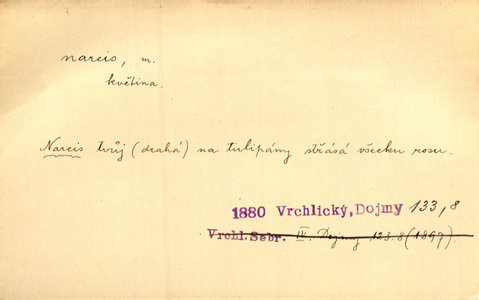 narcis, m.
květina.
Narcis tvůj (drahá) na tulipány střásá všecku rosu.
1880 Vrchlický, Dojmy 133,8
Vrchl. Sebr. IV. Dojmy 123.8 (1897).